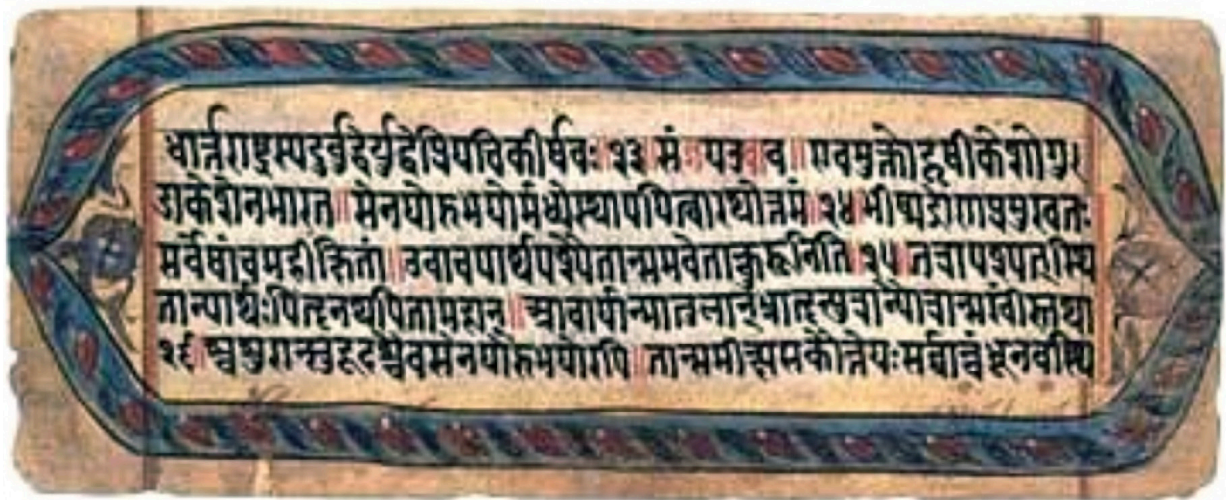 धार्त्तराष्ट्रस्यदुर्बुद्धेर्युद्धेप्रियचिकीर्षवः॥२३॥संजयउवाच॥एवमुक्तोहृषीकेशोगु
डाकेशेनभारत॥सेनयोरुभयोर्मध्येस्थापयित्वारथोत्तमं॥२४॥भीष्मद्रोणप्रमुखतः
सर्वेषांचमहीक्षितां॥उवाचपार्थपश्यैतान्समवेतान्कुरूनिति॥२५॥तत्रापश्यत्स्थि
तान्पार्थःपितॄनथपितामहान्॥आचार्यान्मातुलान्भ्रातॄन्पुत्रान्पौत्रान्सखींस्तथा
२६॥श्वशुरान्सुहृदश्चैवसेनयोरुभयोरपि॥तान्समीक्ष्यसकौंतेयःसर्वान्बंधूनवस्थि